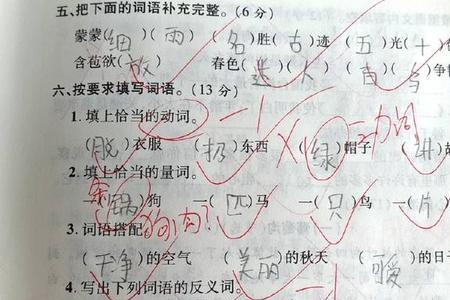 五、把下面的词语补充完整。(6分)
蒙蒙(细)(雨) (名)胜(古)迹 (五)光(十)
含苞欲(放) 春色(迷)(人) 百(鸟)争
六、按要求填写词语。(13分) -1
1.填上恰当的动词。
(脱)衣服 (扔)东西 (绿)帽子 动词
2.填上恰当的量词。
一(锅)狗 一(匹)马 一(只)鸟 一(片)
条 狗肉?
3.词语搭配
(干净)的空气 (美丽)的秋天 (暖)的日
4.写出下列词语的反义词。